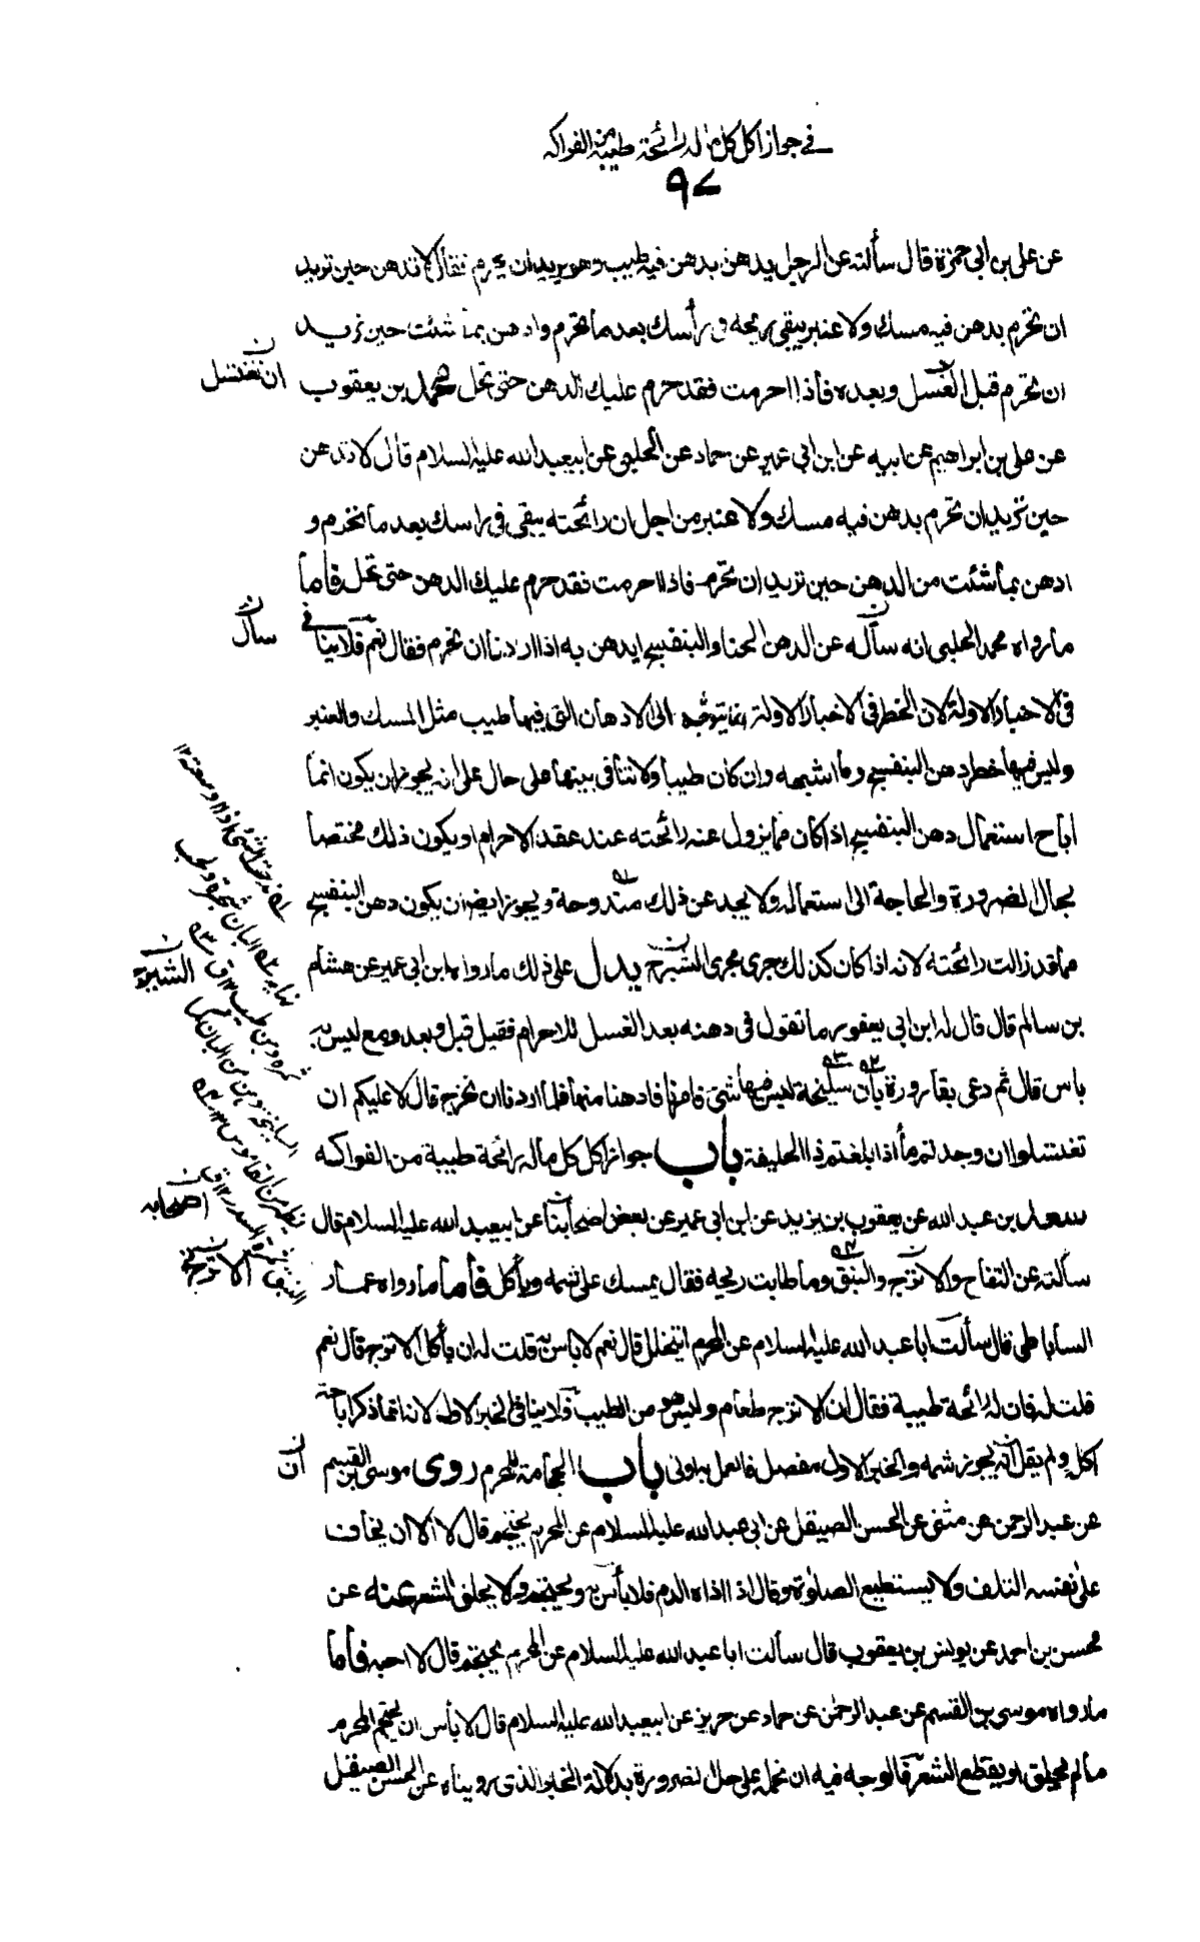 في جواز اكل كل ما له رائحة طيبة من الفواكه
٩٧
عن علي بن ابي حمزة قال سألته عن الرجل يدهن بدهن فيه طيب وهو يريد ان يحرم فقال لا تدهن حين تريد
ان تحرم بدهن فيه مسك ولا عنبر يبقى ريحه في رأسك بعد ما تحرم وادهن بما شئت حين تريد
ان تحرم قبل الغسل وبعده فاذا احرمت فقد حرم عليك الدهن حتى تحل محمد بن يعقوب
ان تغتسل
عن علي بن ابراهيم عن ابيه عن ابن ابي عمير عن حماد عن الحلبي عن ابيعبد الله عليه السلام قال لا تدهن
حين تريد ان تحرم بدهن فيه مسك ولا عنبر من اجل ان رائحته يبقى في راسك بعد ما تحرم و
ادهن بما شئت من الدهن حين تريد ان تحرم فاذا احرمت فقد حرم عليك الدهن حتى تحل فأما
ما رواه محمد الحلبي انه سأله عن الدهن الحنا والبنفسج ايدهن به اذا اردنا ان نحرم فقال نعم فلا ينافي
سأل
في الاخبار الاولة لان الحظر في الاخبار الاولة انما يتوجه الى الادهان التي فيها طيب مثل المسك والعنبر
وليس فيها حظر دهن البنفسج وما اشبهه وان كان طيبا ولا تنافي بينها على حال على انه يجوز ان يكون انما
اباح استعمال دهن البنفسج اذا كان مما يزول عنه رائحته عند عقد الاحرام او يكون ذلك مختصا
بحال الضرورة والحاجة الى استعماله ولا يجد عن ذلك مندوحة ويجوز ايضا ان يكون دهن البنفسج
مما قد زالت رائحته لانه اذا كان كذلك جرى مجرى الشيرج يدل على ذلك ما رواه ابن ابي عمير عن هشام
بن سالم قال قال له ابن ابي يعفور ما تقول في دهنه بعد الغسل للاحرام فقيل قبل وبعد ومع ليس به
باس قال ثم دعى بقارورة بان سليخة ليس فيها شئ فامرنا فادهنا منها فلما اردنا ان نخرج قال لا عليكم ان
تغتسلوا ان وجدتم ماء اذا بلغتم ذا الحليفة باب جواز اكل كل ماله رائحة طيبة من الفواكه
سعد بن عبد الله عن يعقوب بن يزيد عن ابن ابي عمير عن بعض اصحابنا عن ابيعبد الله عليه السلام قال
اصحابه
سألته عن التفاح والاترج والنبق وما طابت ريحه فقال يمسك على شمه ويأكل فأما ما رواه عمار
الساباطي قال سألت ابا عبد الله عليه السلام عن المحرم ايتخلل قال نعم لا باس به قلت له ان يأكل الاترج قال نعم
قلت له فان له رائحة طيبة فقال ان الاترج طعام وليس هو من الطيب فلا ينافي الخبر الاول لانه انما ذكر اباحة
اكله ولم يقل انه يجوز شمه والخبر الاول مفصل فالعمل به اولى باب الحجامة للمحرم روى موسى بن القسم
ان
عن عبد الرحمن عن مثنى عن الحسن الصيقل عن ابي عبد الله عليه السلام عن المحرم يحتجم قال لا الا ان يخاف
على نفسه التلف ولا يستطيع الصلوة وقال اذا اذاه الدم فلا بأس به ويحتجم ولا يحلق الشعر عنه عن
محسن بن احمد عن يونس بن يعقوب قال سألت ابا عبد الله عليه السلام عن المحرم يحتجم قال لا احبه فأما
ما رواه موسى بن القسم عن عبد الرحمن عن حماد عن حريز عن ابيعبد الله عليه السلام قال لا بأس ان يحتجم المحرم
ما لم يحلق او يقطع الشعر فالوجه فيه ان نحمله على حال الضرورة بدلالة الخبر الذي رويناه عن الحسن الصيقل